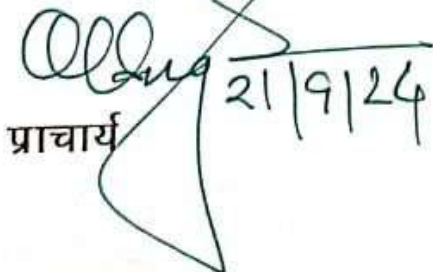 21/9/24
प्राचार्य